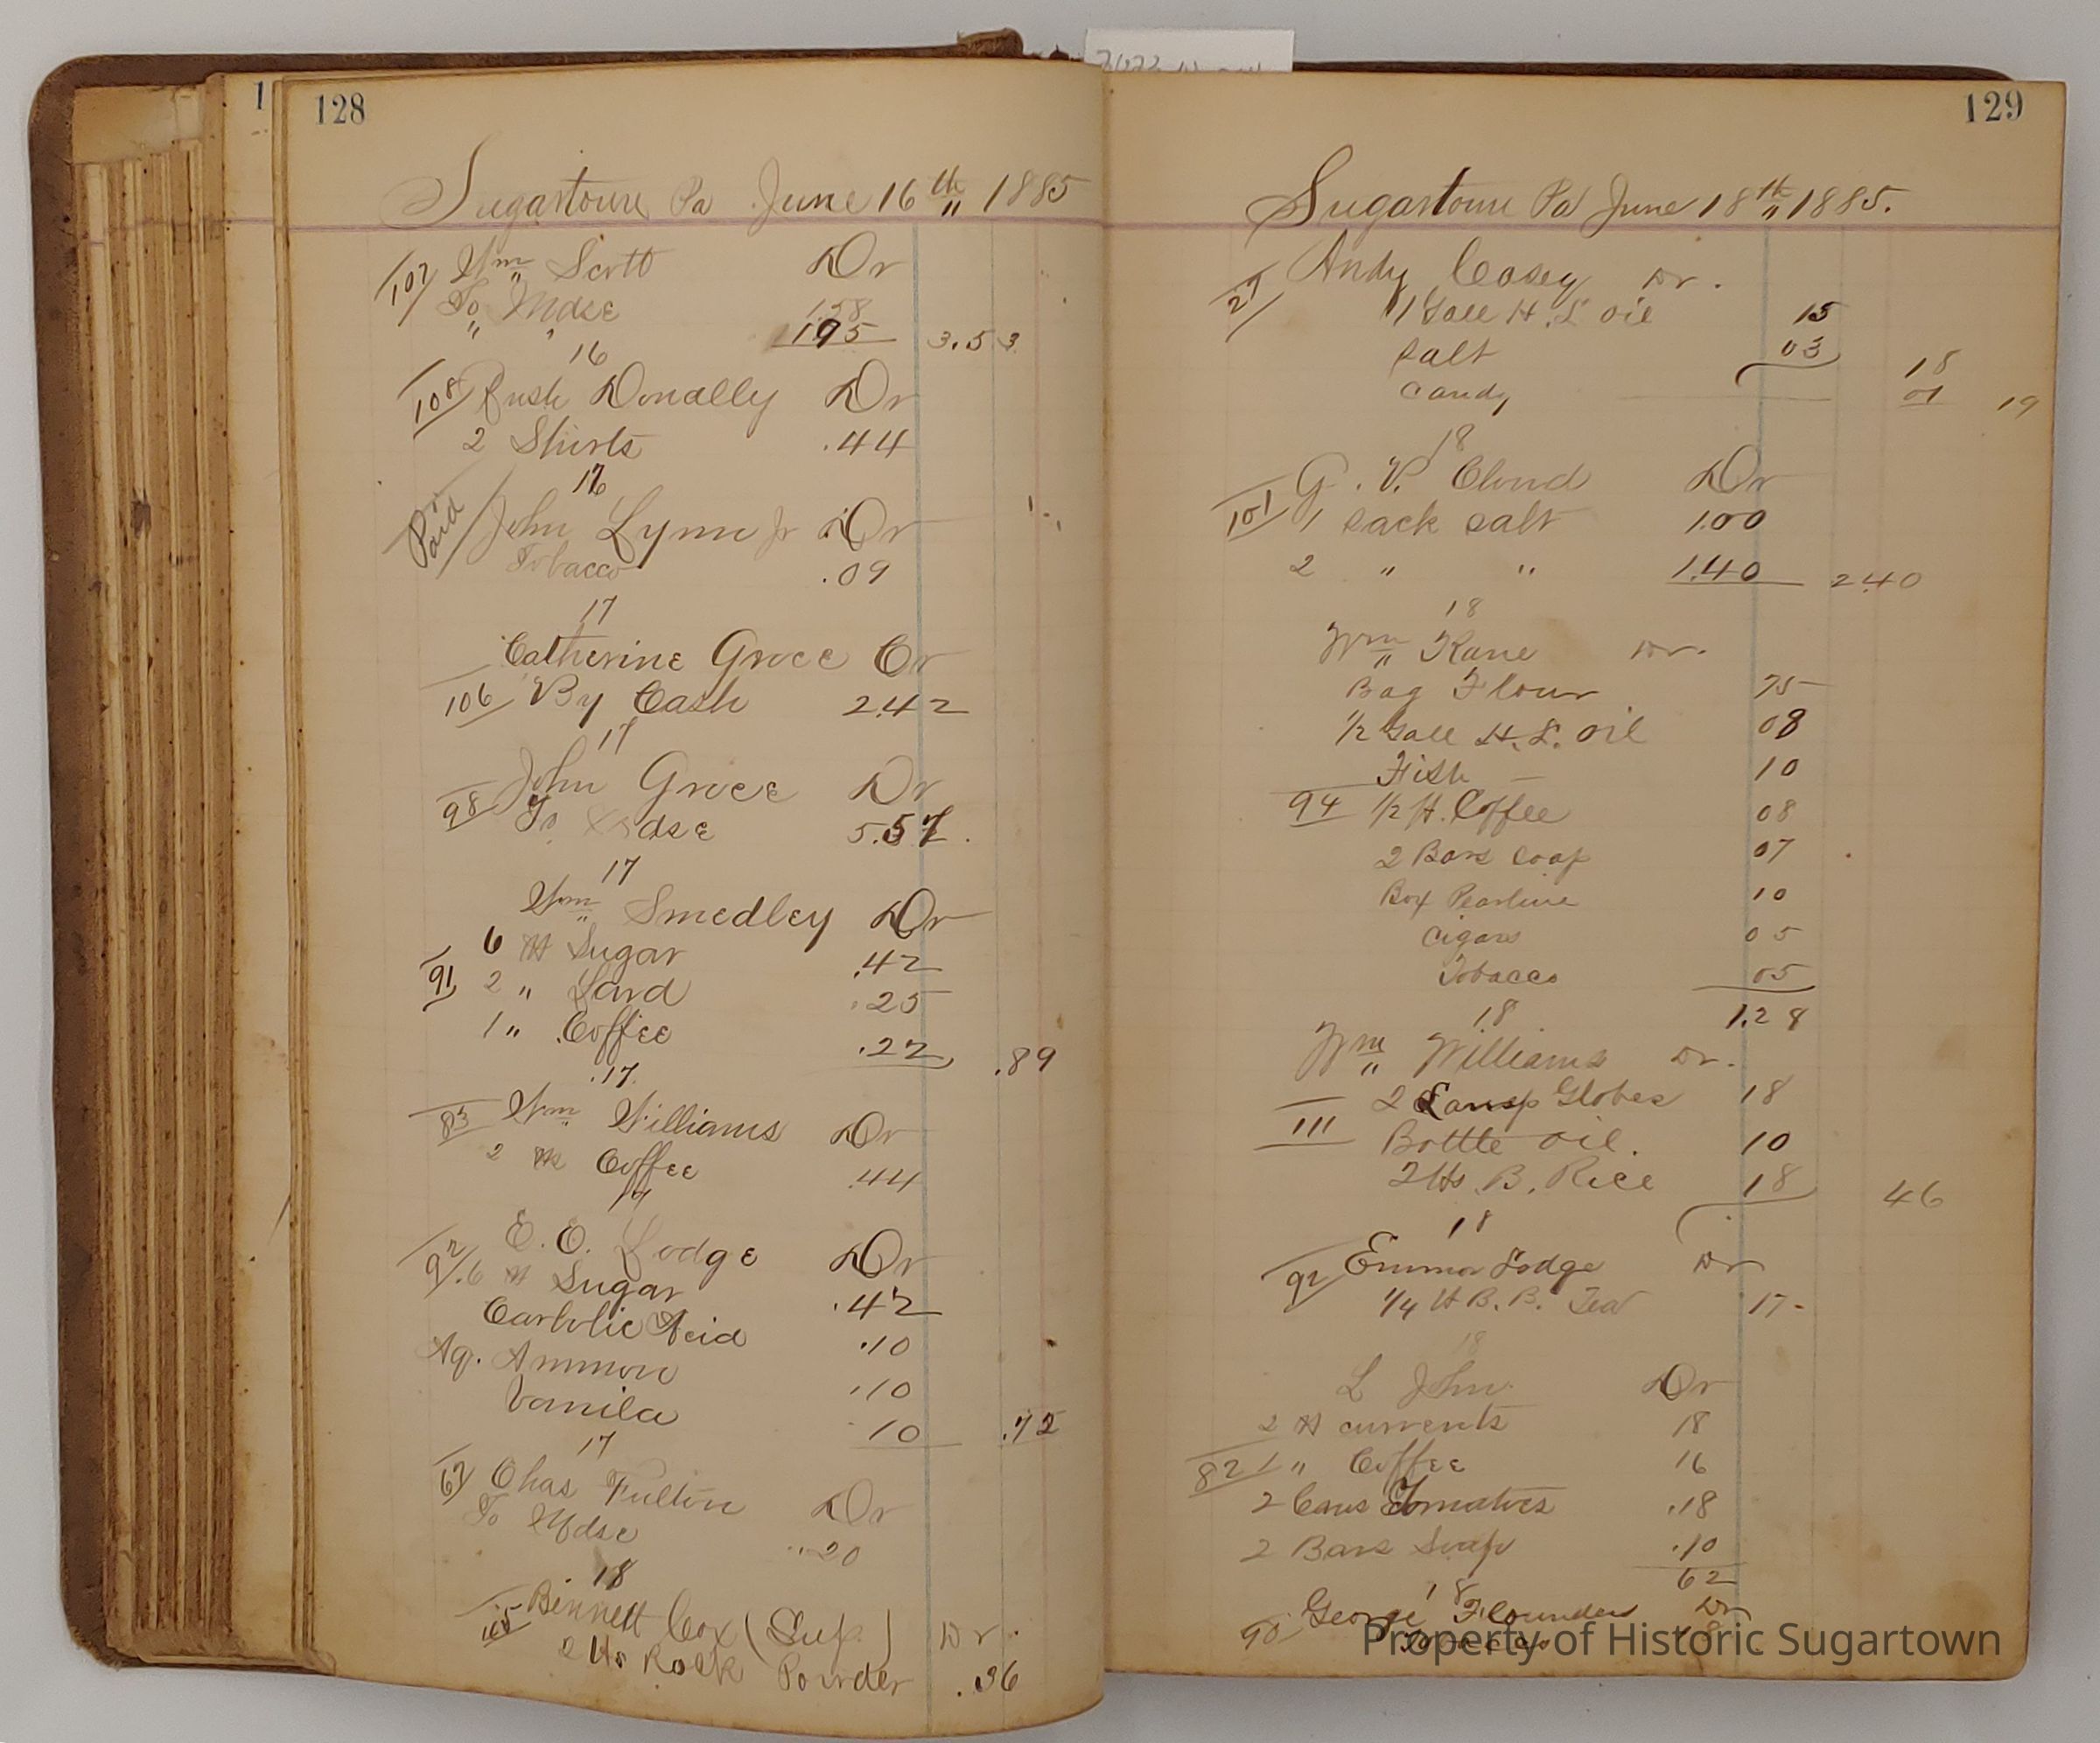 128
Sugartown Pa June 16th 1885
107 Wm Scott Dr
To Mdse 1.58
" " 1.95 3.53
16
108 Rush Donally Dr
2 Shirts .44
16
Paid John Lynn Jr Dr
Tobacco .09
17
Catherine Groce Cr
106 By Cash 2.42
17
98 John Groce Dr
To Mdse 5.57
17
Wm Smedley Dr
6 # Sugar .42
91 2 " Lard .25
1 " Coffee .22 .89
17
83 Wm Williams Dr
2 #s Coffee .44
17
E. O. Lodge Dr
92 6 # Sugar .42
Carbolic Acid .10
Aq. Ammon .10
Vanila 10 .72
17
67 Chas Fulton Dr
To Mdse .20
18
105 Bennett Cox (Sup.) Dr.
2 #s Rock Powder .36
129
Sugartown Pa June 18th 1885.
Andy Casey Dr.
27 1 Gall H. L oil 15
Salt 03 18
Candy 01 19
18
G. V. Cloud Dr
101 1 Sack Salt 1.00
2 " " 1.40 2.40
18
Wm Kane Dr.
Bag Flour 75
1/2 Gall H. L. oil 08
Fish 10
94 1/2 #. Coffee 08
2 Bars Soap 07
Box Pearline 10
Cigars 05
Tobacco 05
18 1.28
Wm Williams Dr.
2 Lamp Globes 18
111 Bottle oil. 10
2 #s B. Rice 18 46
18
92 Emma Lodge Dr
1/4 # B. B. Tea 17-
18
L John Dr
2 # currents 18
82 1 " Coffee 16
2 Cans Tomatoes .18
2 Bars Soap .10
62
18
90 George Flounders Dr
Tobacco
Property of Historic Sugartown